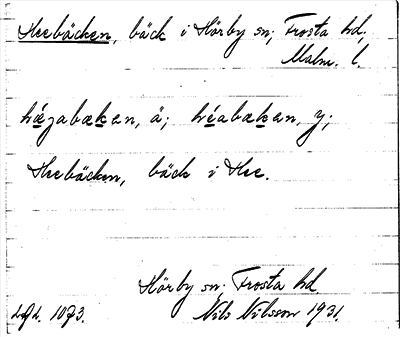 Heebäcken, bäck i Hörby sn, Frosta hd,
Malm. l.
hǽgabækan, ä; hréabækan, y;
Heebäcken, bäck i Hee.
Hörby sn. Frosta hd
Nils Nilsson 1931.